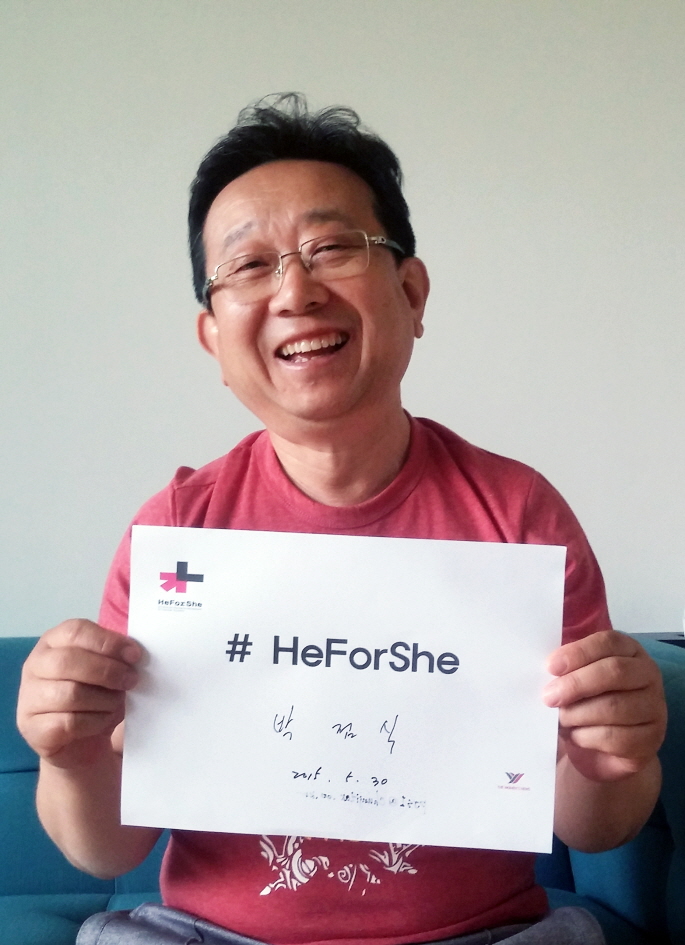 HeForShe
# HeForShe
박 점 식
2015. 5. 30